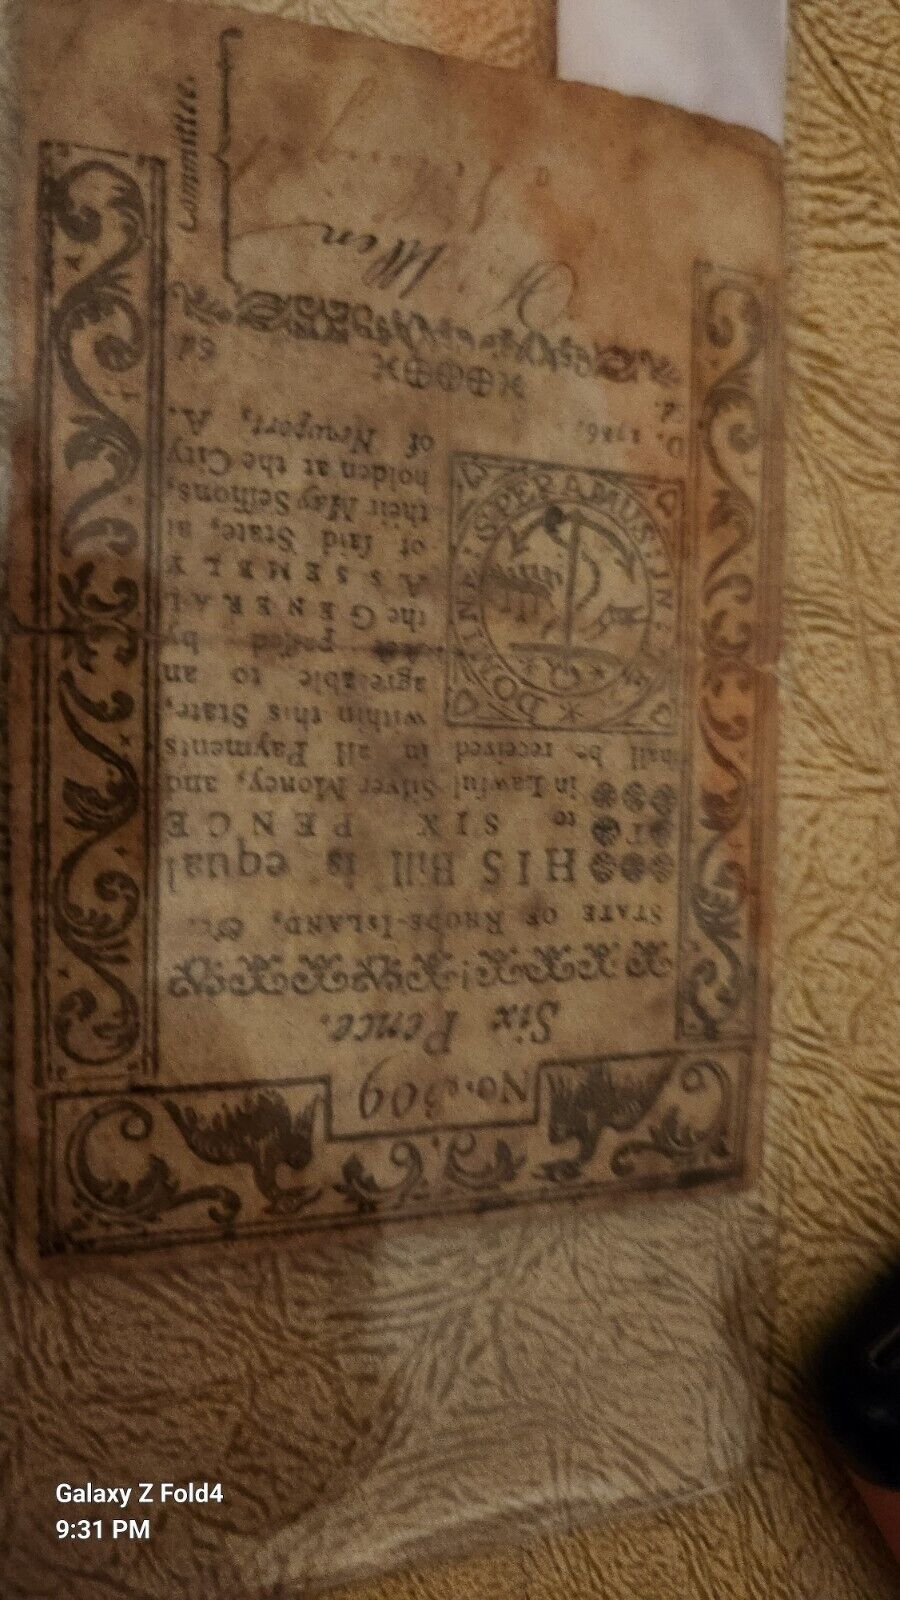 No. 309
Six Pence.
STATE OF RHODE-ISLAND, &c.
THIS Bill is equal
to SIX PENCE
in Lawful Silver Money, and
shall be received in all Payments
within this State,
agreeable to an
Act passed by
the GENERAL
ASSEMBLY
of said State, at
their May Sessions,
holden at the City
of Newport, A.
D. 1786.
SPERAMUS IN DOMINE
6d. 6d.
Allen
Committee.
Galaxy Z Fold4
9:31 PM